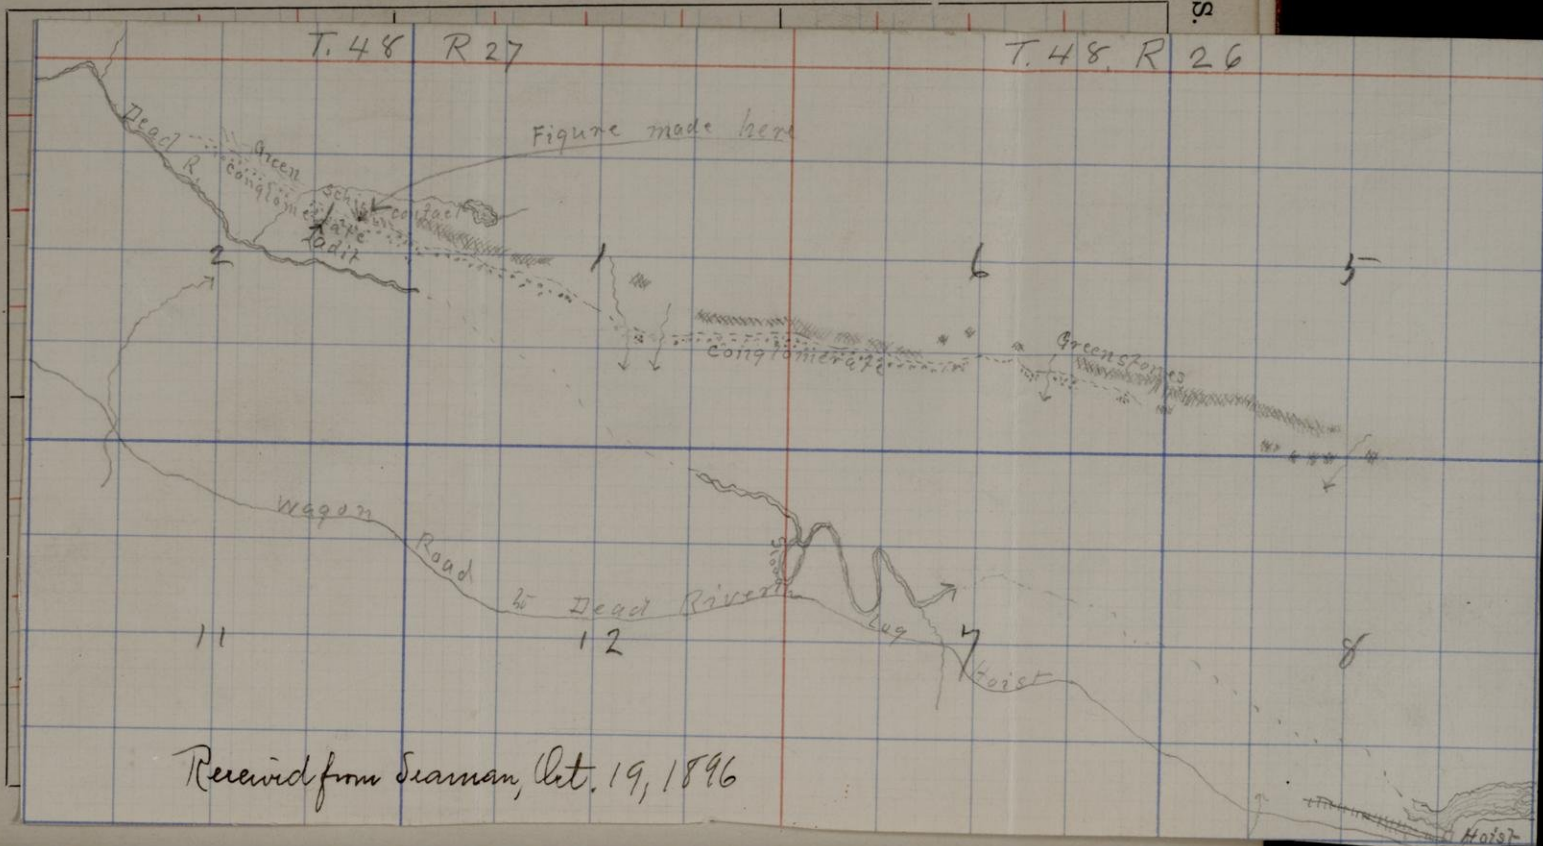 S.
T. 48 R 27
T. 48. R 26
Figure made here
Dead R.
Green
Schist
contact
Conglomerate
adit
2
1
6
5
Conglomerate
Greenstones
Wagon Road to Dead River
Log
Hoist
11
12
7
8
Received from Seaman, Oct. 19, 1896
Hoist